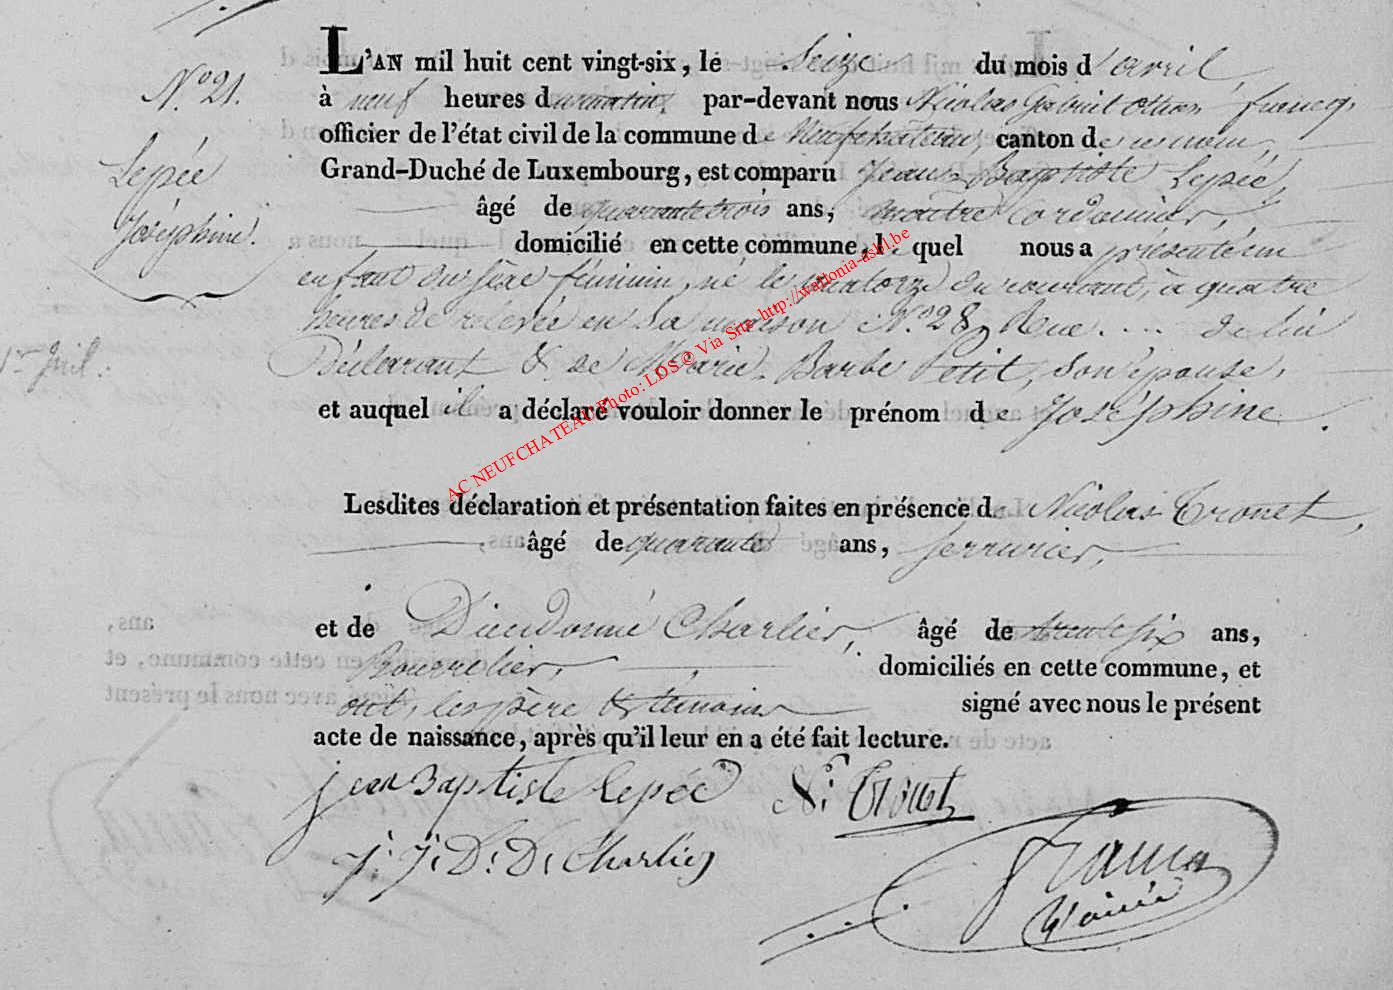 L'AN mil huit cent vingt-six, le Seize du mois d'avril,
N.° 21. à neuf heures du matin, par-devant nous Nicolas Gabriel
officier de l'état civil de la commune de Neufchâteau, canton de ce nom,
Lepée Grand-Duché de Luxembourg, est comparu Jean-Baptiste Lepée,
Joséphine. âgé de quarante trois ans, maitre cordonnier,
domicilié en cette commune, lequel nous a présenté un
enfant du sexe féminin, né le quatorze du courant, à quatre
heures de relevée en sa maison N.° 28, Rue .... de lui
Déclarant & de Marie-Barbe Petit, son épouse,
et auquel il a déclaré vouloir donner le prénom de Joséphine.
Lesdites déclaration et présentation faites en présence de Nicolas Tronet,
âgé de quarante ans, serrurier,
et de Dieudonné Charlier, âgé de trente six ans,
Bourrelier, domiciliés en cette commune, et
ont, les père & témoins signé avec nous le présent
acte de naissance, après qu'il leur en a été fait lecture.
jean Baptiste Lepée N: Tronet
J: J: D: D: Charlier
AC NEUFCHATEAU Photo: LDS © Via Site http://wallonia-asbl.be